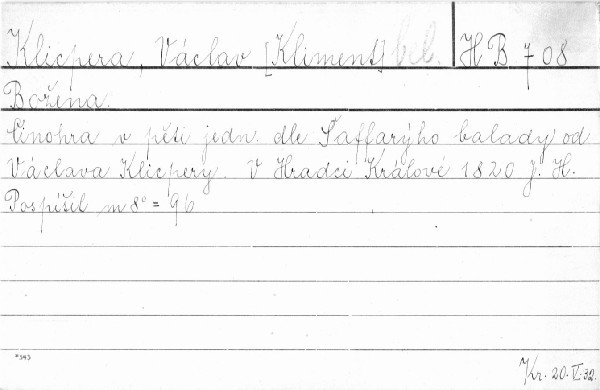 Klicpera, Václav [Kliment] bel. HB 708
Božena.
Činohra v pěti jedn. dle Šaffarýho balady od
Václava Klicpery. V Hradci Králové 1820 J. H.
Pospíšil m 8° = 96
*343
Kr. 20.V.32.